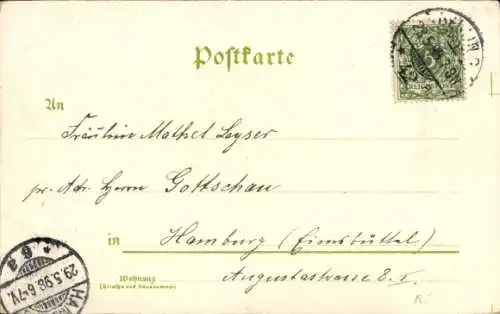 Postkarte
An
Fräulein Mathet Leyser
pr. Adr. Herrn Gottschau
in Hamburg (Eimsbüttel)
Wohnung
(Straße und Hausnummer)
Augustastrasse 8. I.
BERLIN
29.5.98. 6-7V.
HA